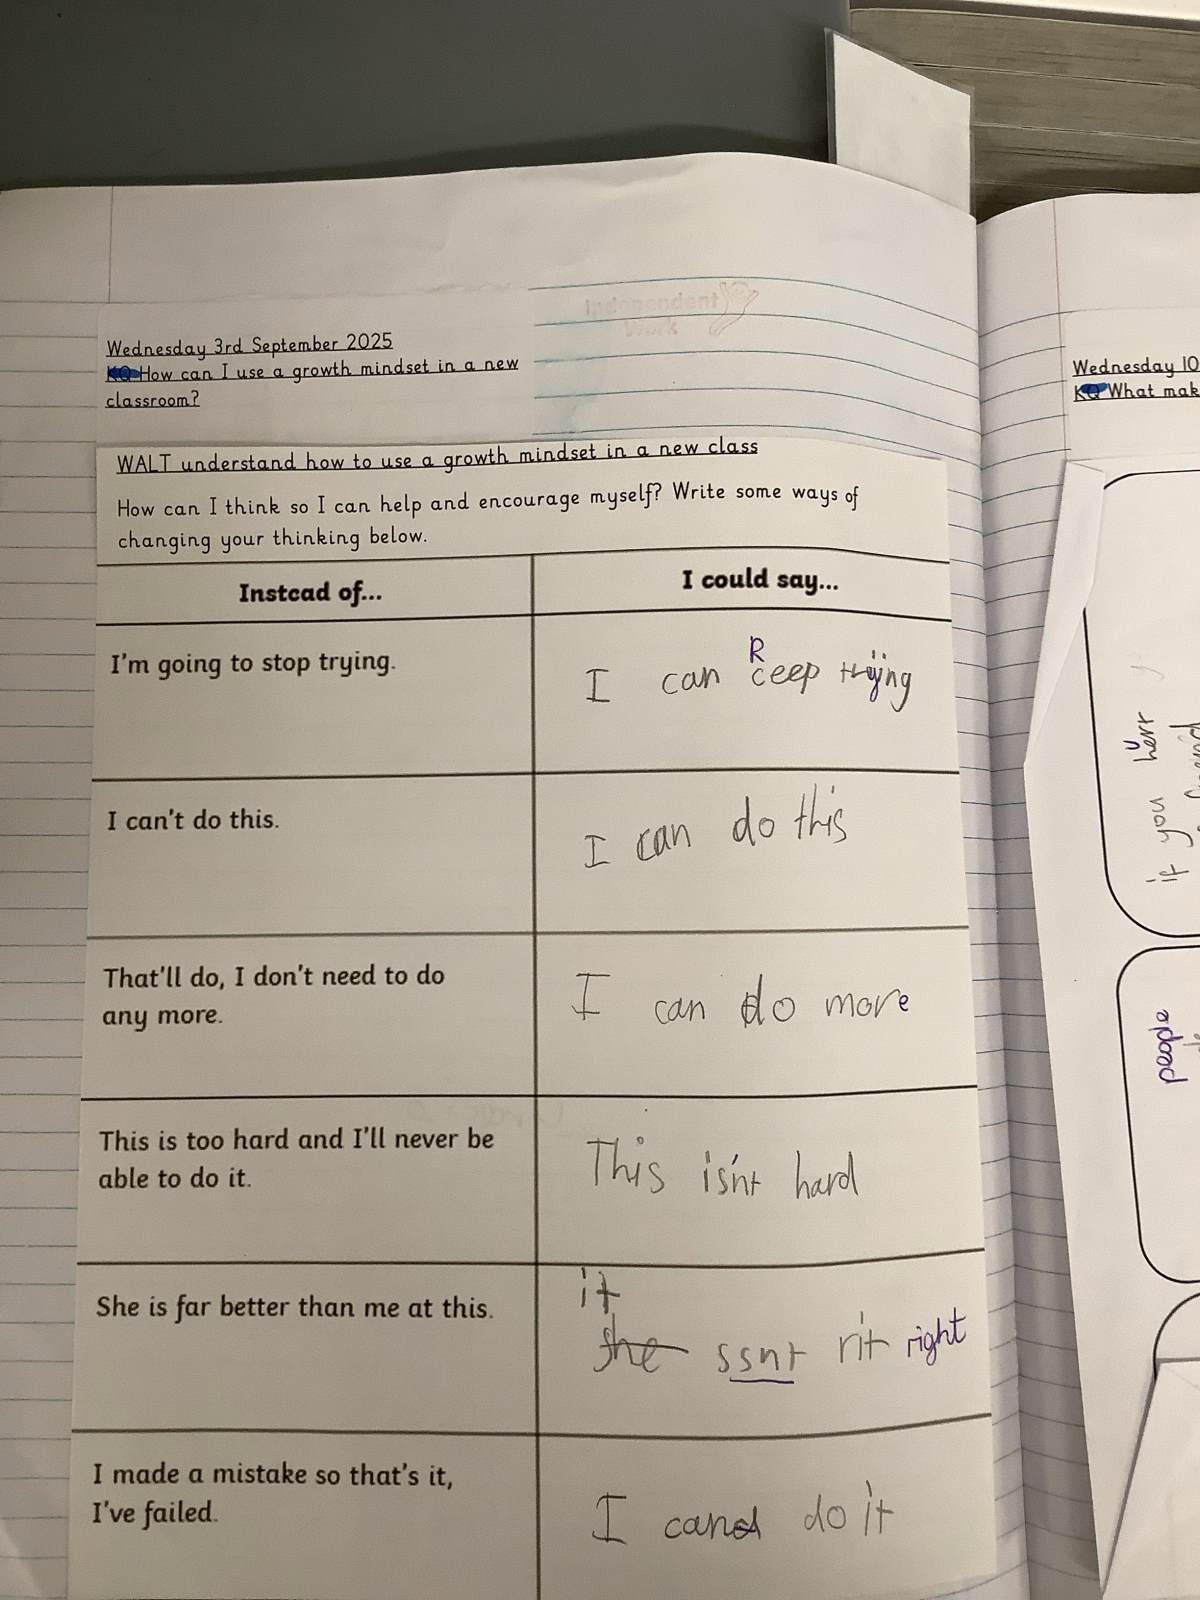 Independent
Work
Wednesday 3rd September 2025
KQ How can I use a growth mindset in a new
classroom?
WALT understand how to use a growth mindset in a new class
How can I think so I can help and encourage myself? Write some ways of
changing your thinking below.
Instead of...
I could say...
I'm going to stop trying.
R
I can ceep trying
I can't do this.
I can do this
That'll do, I don't need to do
any more.
I can do more
This is too hard and I'll never be
able to do it.
This isn't hard
She is far better than me at this.
it
she ssnt rit right
I made a mistake so that's it,
I've failed.
I can do it
Wednesday 10
KQ What mak
if you hert
U
people